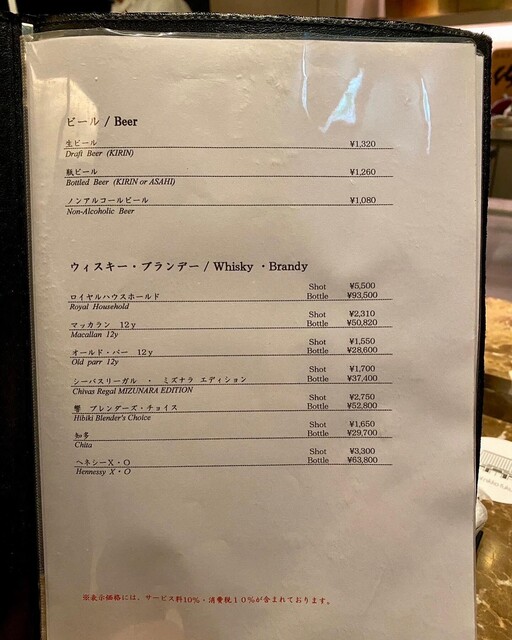 ビール / Beer
生ビール ¥1,320
Draft Beer (KIRIN)
瓶ビール ¥1,260
Bottled Beer (KIRIN or ASAHI)
ノンアルコールビール ¥1,080
Non-Alcoholic Beer
ウィスキー・ブランデー / Whisky ・Brandy
Shot ¥5,500
ロイヤルハウスホールド Bottle ¥93,500
Royal Household
Shot ¥2,310
マッカラン 12y Bottle ¥50,820
Macallan 12y
Shot ¥1,550
オールド・パー 12y Bottle ¥28,600
Old parr 12y
Shot ¥1,700
シーバスリーガル ・ ミズナラ エディション Bottle ¥37,400
Chivas Regal MIZUNARA EDITION
Shot ¥2,750
響 ブレンダーズ・チョイス Bottle ¥52,800
Hibiki Blender's Choice
Shot ¥1,650
知多 Bottle ¥29,700
Chita
Shot ¥3,300
ヘネシーX・O Bottle ¥63,800
Hennessy X・O
※表示価格には、サービス料10%・消費税10%が含まれております。